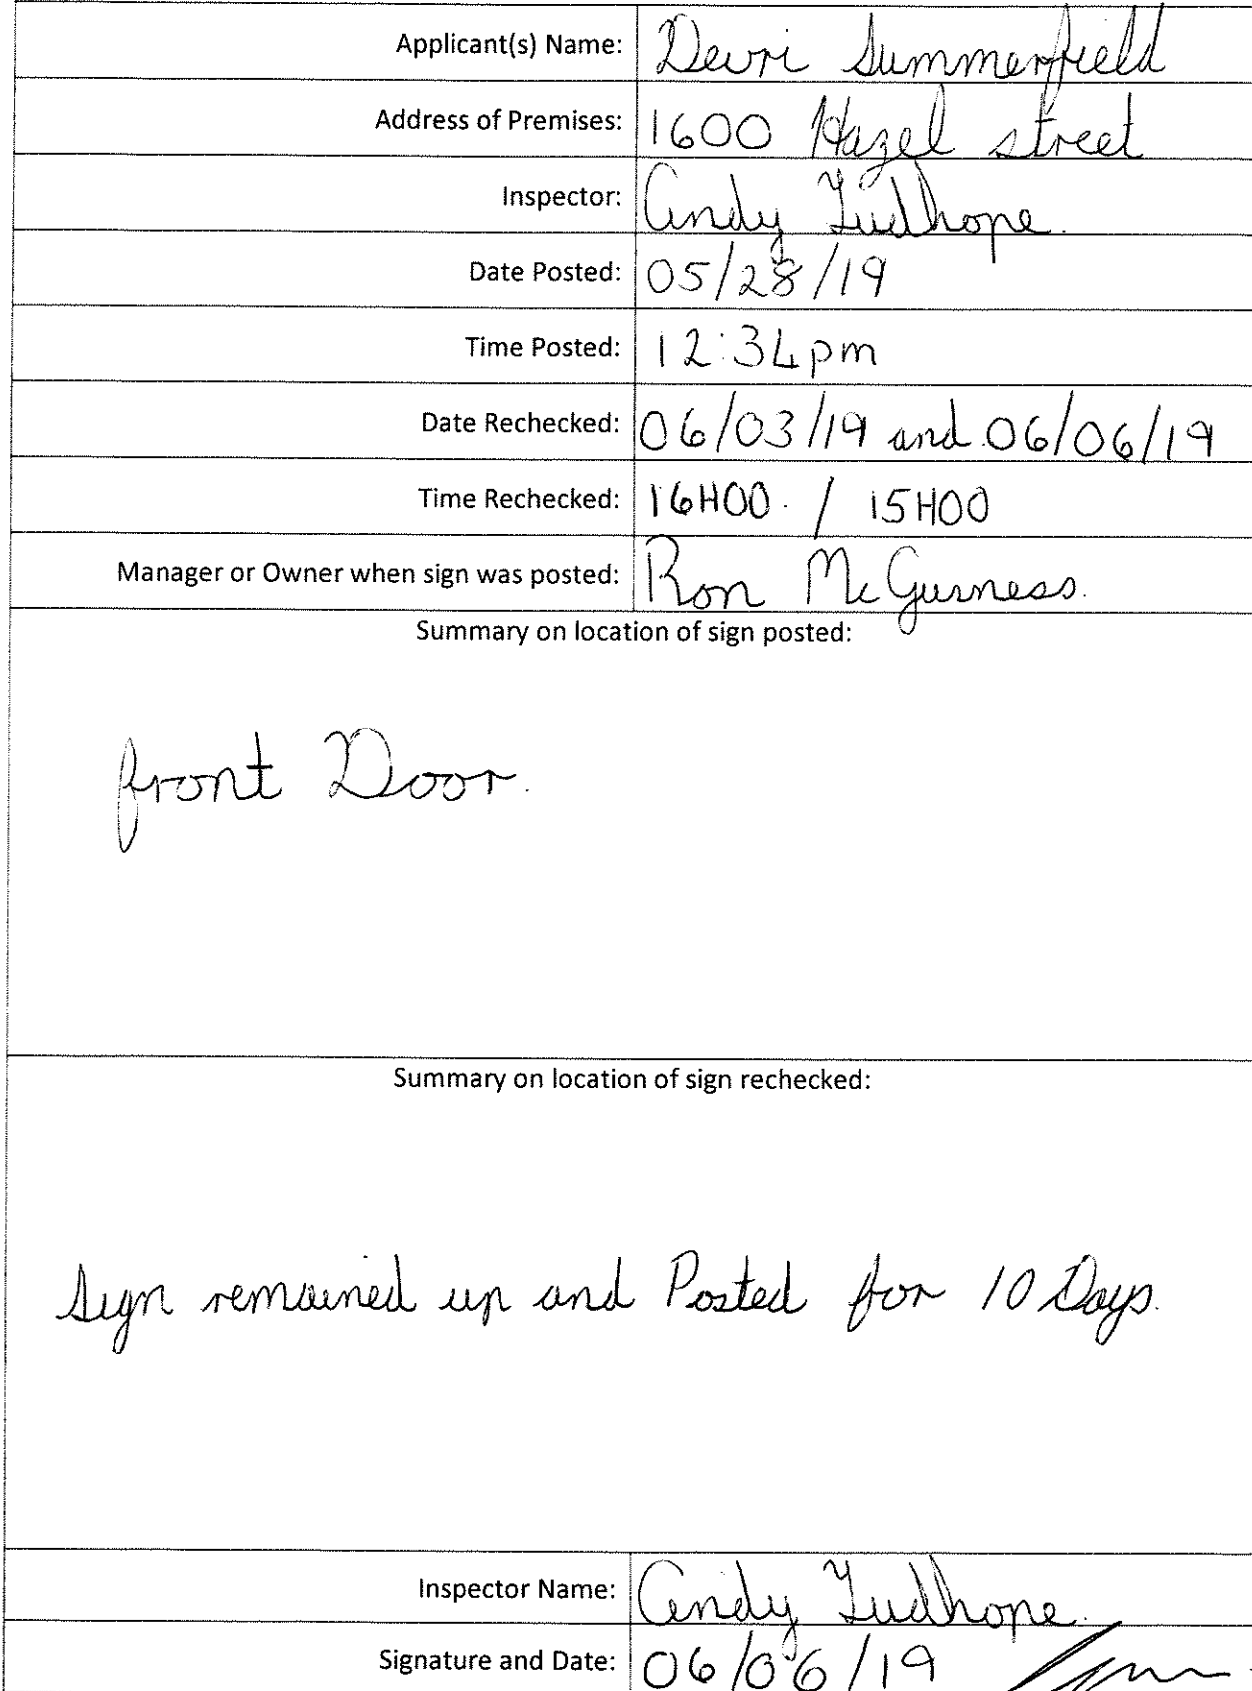 Applicant(s) Name: Devri Summerfield
Address of Premises: 1600 Hazel street
Inspector: Andy Tudhope.
Date Posted: 05/28/19
Time Posted: 12:34pm
Date Rechecked: 06/03/19 and 06/06/19
Time Rechecked: 16H00. / 15H00
Manager or Owner when sign was posted: Ron McGurness.
Summary on location of sign posted:
front Door.
Summary on location of sign rechecked:
Sign remained up and Posted for 10 Days.
Inspector Name: Andy Tudhope.
Signature and Date: 06/06/19